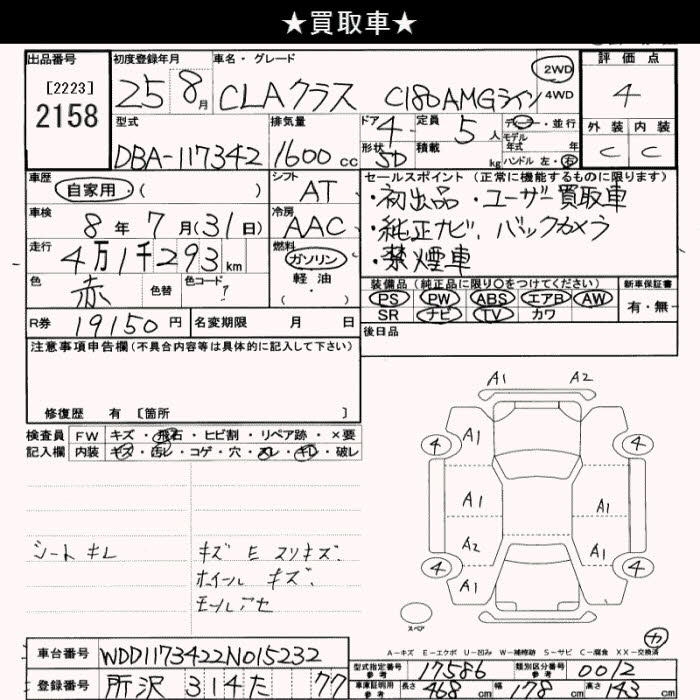 ★買取車★
出品番号
[2223]
2158
初度登録年月
25 8月
車名・グレード
CLAクラス C180AMGライン
2WD
4WD
評価点
4
外装 内装
C C
型式
DBA-117342
排気量
1600cc
ドア
4
形状
5D
定員
5人
積載
kg
ディーラー・並行
モデル年式 年
ハンドル 左・右
車歴
自家用・( )
シフト
AT
セールスポイント(正常に機能するものに限ります)
・初出品 ・ユーザー買取車
・純正ナビ、バックカメラ
・禁煙車
車検
8年7月(31日)
冷房
AAC
走行
4万1千293km
燃料
ガソリン
軽油
( ・ )
色
赤
色替
色コード
?
装備品(純正品に限り○をつけてください)
PS PW ABS エアB AW
SR ナビ TV カワ
新車保証書
有・無
R券 19150円
名変期限 月 日
後日品
注意事項申告欄(不具合内容等は具体的に記入して下さい)
修復歴 有 [箇所 ]
検査員
記入欄
FW キズ・飛石・ヒビ割・リペア跡・×要
内装 キズ・汚レ・コゲ・穴・スレ・キレ・破レ
シートキレ
キズ E スリキズ.
ホイール キズ.
モールアセ
A1 A2
4 A1 4
A1 A1
A2
4 A1 A1 4
スペア
A-キズ E-エクボ U-凹み W-補修跡 S-サビ C-腐食 XX-交換済
カ
車台番号 WDD1173422N015232
登録番号 所沢 314 た 77
型式指定番号
参考
17586
類別区分番号
参考
0012
車庫証明用
参考
長さ 468cm 幅 178cm 高さ 143cm